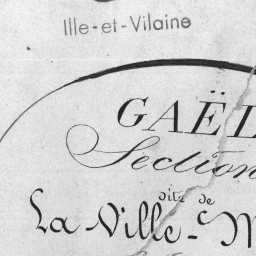 Ille-et-Vilaine
GAËL
Section
dite de
La-Ville-M